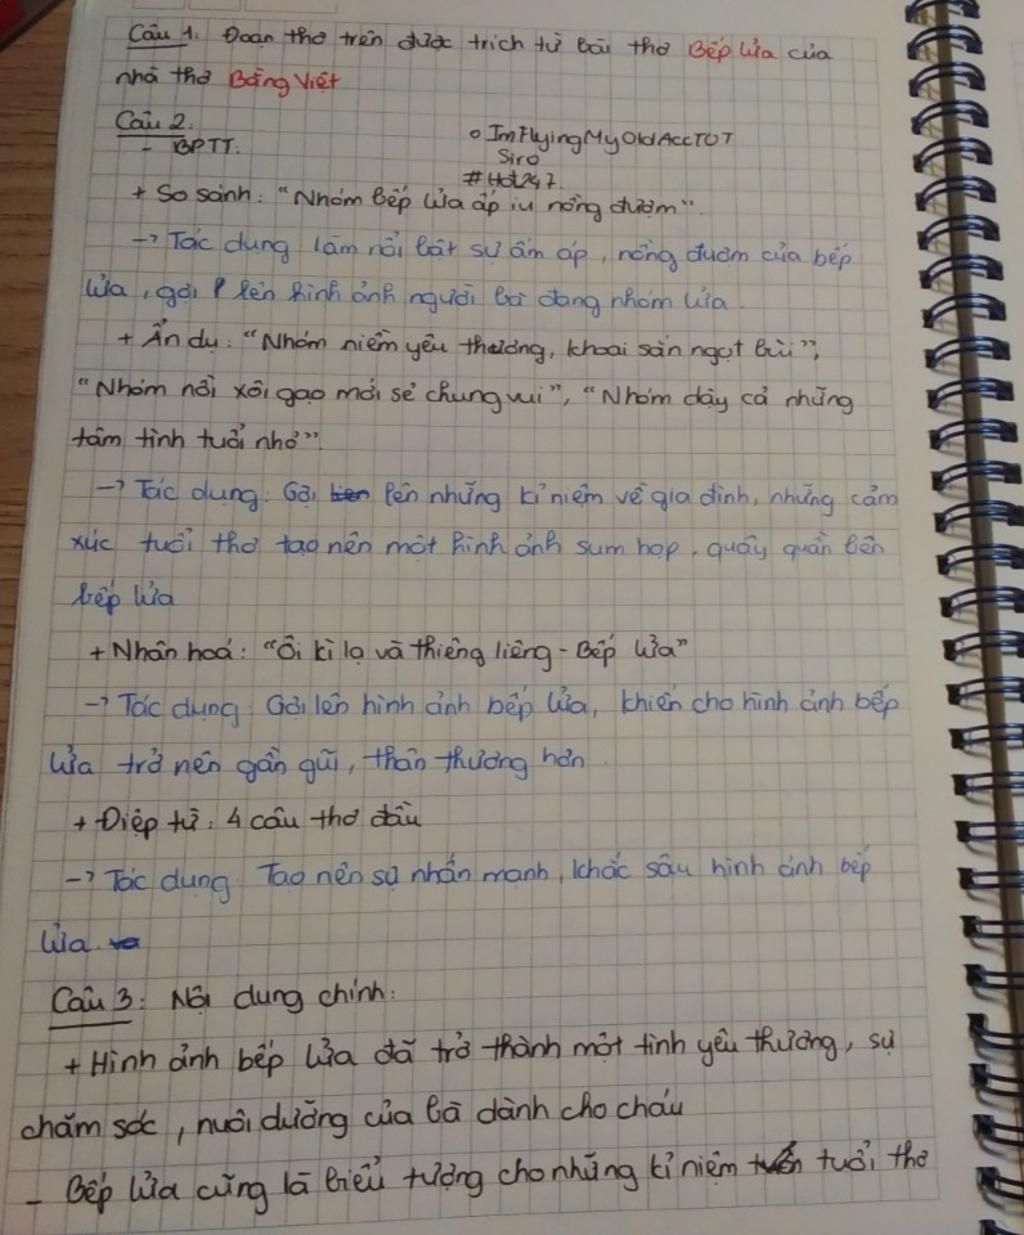 Câu 1. Đoạn thơ trên được trích từ bài thơ Bếp lửa của
nhà thơ Bằng Việt
Câu 2.
- BPTT.
o ImFlyingMyOldAccTOT
Siro
#Hot247.
+ So sánh: "Nhóm bếp lửa ấp iu nồng đượm".
-> Tác dụng làm nổi bật sự ấm áp, nồng đượm của bếp
lửa, gợi lên hình ảnh người bà đang nhóm lửa.
+ Ẩn dụ: "Nhóm niềm yêu thương, khoai sắn ngọt bùi",
"Nhóm nồi xôi gạo mới sẻ chung vui", "Nhóm dậy cả những
tâm tình tuổi nhỏ".
-> Tác dụng: Gợi lên những kỉ niệm về gia đình, những cảm
xúc tuổi thơ tạo nên một hình ảnh sum họp, quây quần bên
bếp lửa
+ Nhân hoá: "Ôi kì lạ và thiêng liêng - Bếp lửa"
-> Tác dụng: Gợi lên hình ảnh bếp lửa, khiến cho hình ảnh bếp
lửa trở nên gần gũi, thân thương hơn.
+ Điệp từ: 4 câu thơ đầu
-> Tác dụng: Tạo nên sự nhấn mạnh, khắc sâu hình ảnh bếp
lửa.
Câu 3: Nội dung chính:
+ Hình ảnh bếp lửa đã trở thành một tình yêu thương, sự
chăm sóc, nuôi dưỡng của bà dành cho cháu
- Bếp lửa cũng là biểu tượng cho những kỉ niệm tuổi thơ